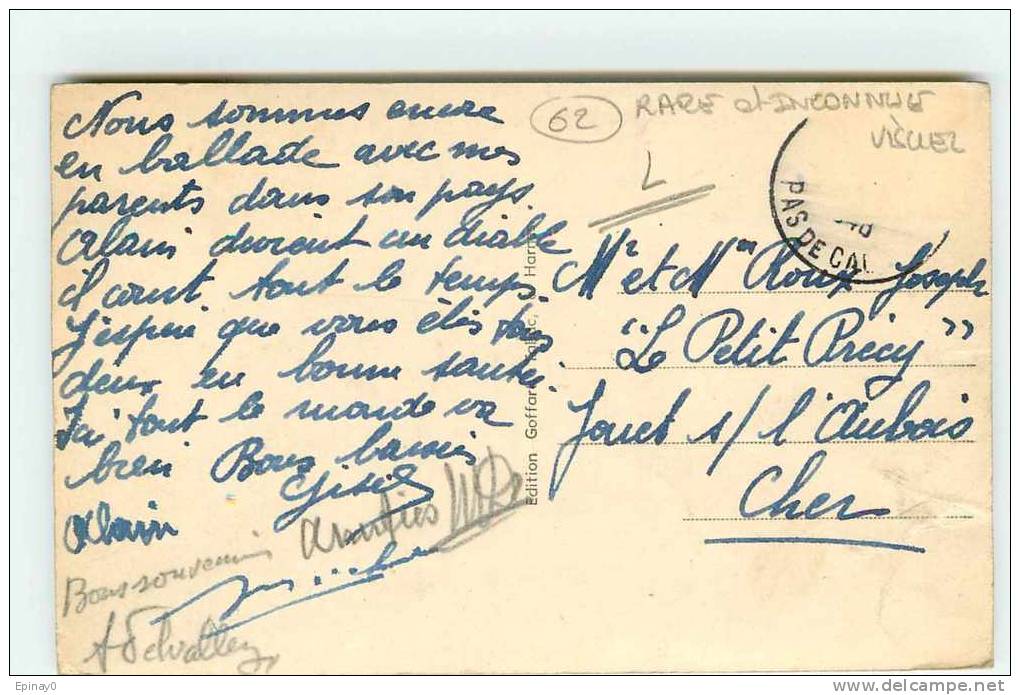 Nous sommes encore
en ballade avec mes
parents dans son pays.
Alain devient un diable
il court tout le temps.
J'espère que vous êtes tous
deux en bonne santé.
Ici tout le monde va
bien Bons baisers
Gisèle
Alain
Bons souvenirs
A Delvallez
62
RARE et INCONNUE
VISUEL
PAS DE CAL
Mr et Mme Roux Joseph
"Le Petit Précy"
Jouet s/ l'Aubois
Cher
Edition Goffart
Epinay0
www.delcampe.net